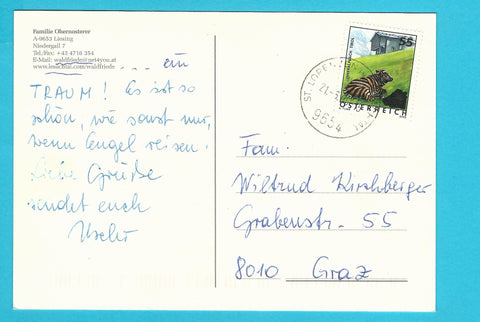 Familie Obernosterer
A-9653 Liesing
Niedergail 7
Tel./Fax: +43 4716 354
E-Mail: waldfriede@net4you.at
www.lesachtal.com/waldfriede
... ein
TRAUM! Es ist so
schön, wie sonst nur,
wenn Engel reisen!
Liebe Grüße
sendet euch
55
ÖSTERREICH
9654
Fam.
Wiltrud Kirchberger
Grabenstr. 55
8010 Graz